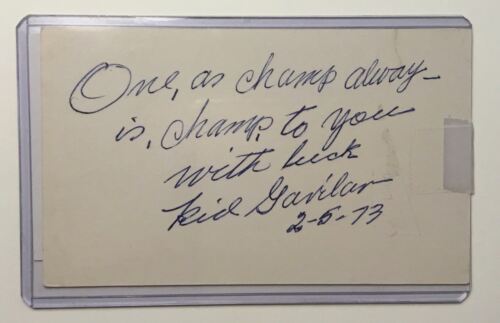 One, as champ alway-
is, champ. to you
with luck
Kid Gavilan
2-5-73